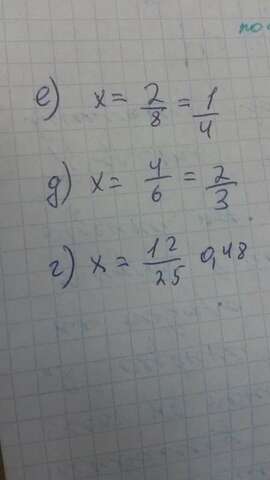 е) x = 2/8 = 1/4
д) x = 4/6 = 2/3
г) x = 12/25 0,48